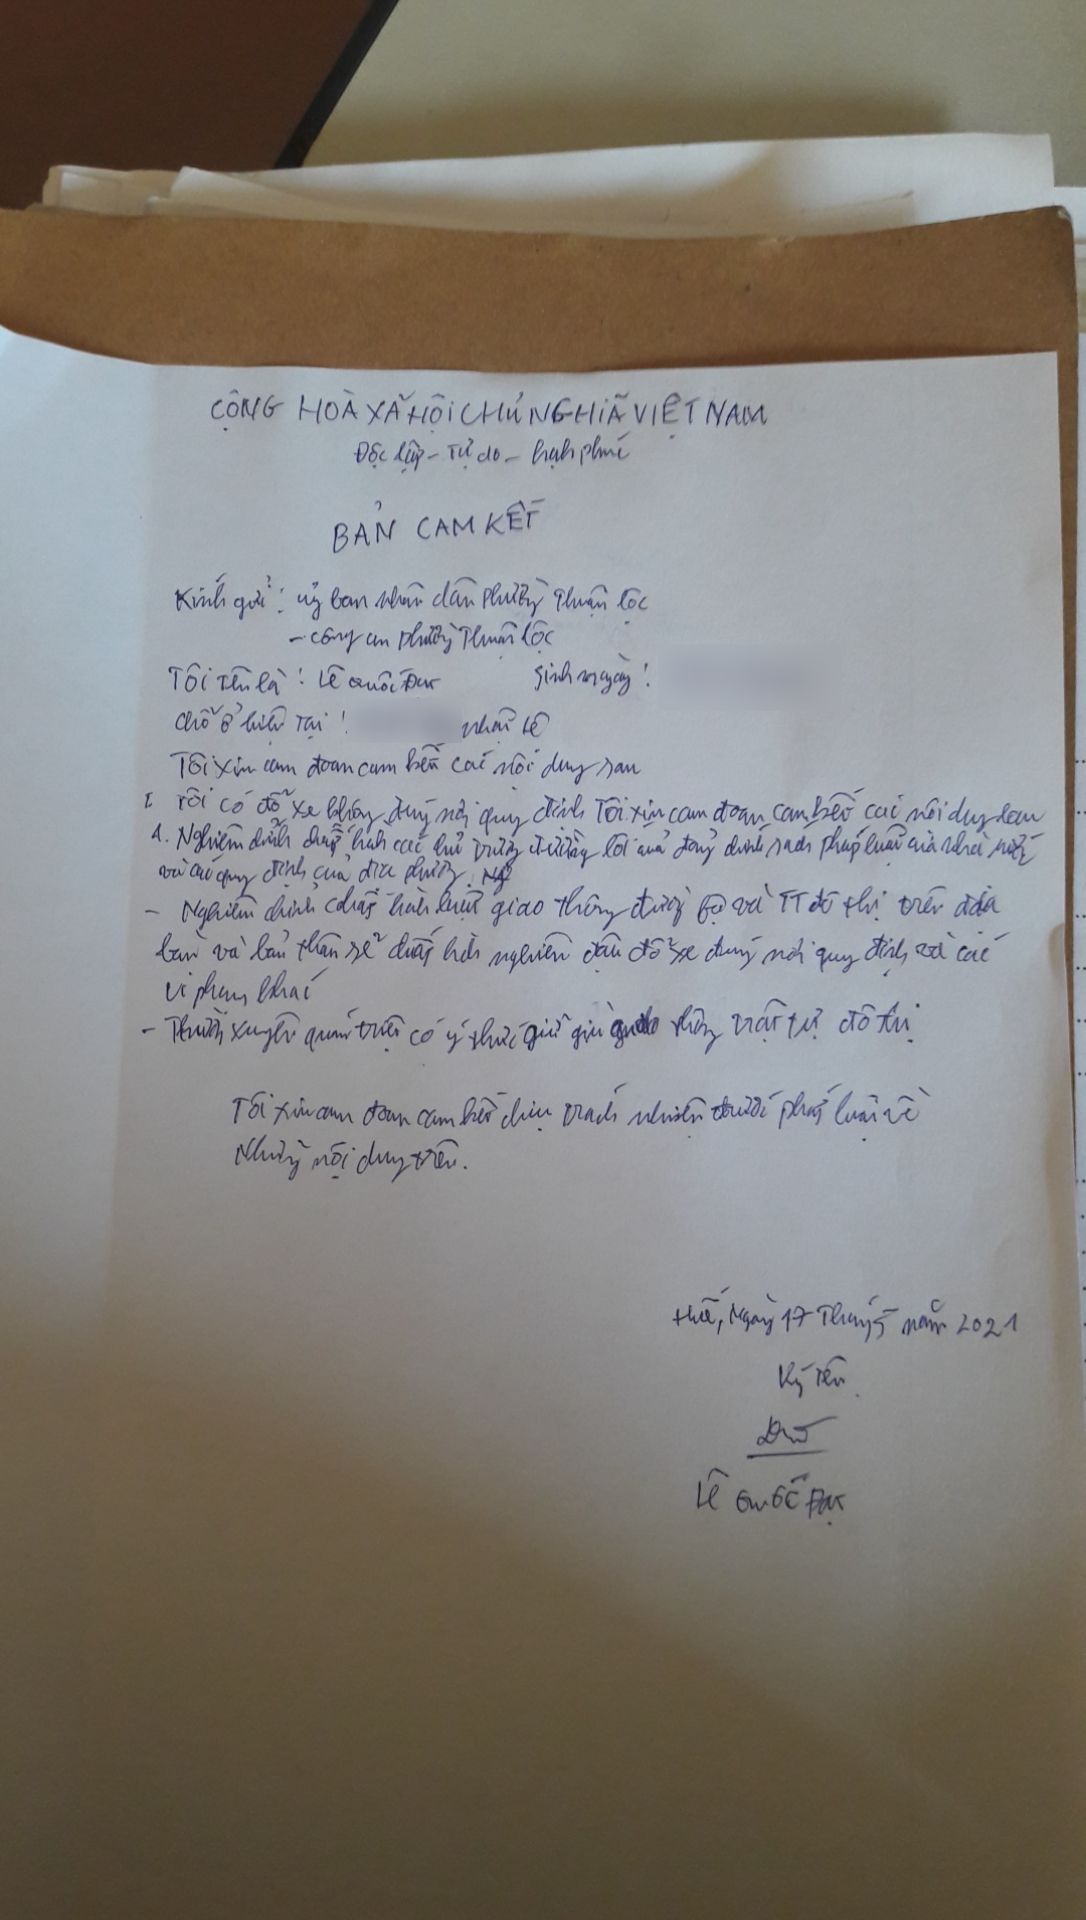 CỘNG HOÀ XÃ HỘI CHỦ NGHĨA VIỆT NAM
Độc lập - Tự do - hạnh phúc
BẢN CAM KẾT
Kính gửi: uỷ ban nhân dân phường Thuận lộc
- công an phường Thuận lộc
Tôi tên là: Lê Quốc Đạt sinh ngày:
chỗ ở hiện tại: nhật lệ
Tôi xin cam đoan cam kết các nội dung sau
I Tôi có đỗ xe không đúng nơi quy định Tôi xin cam đoan cam kết các nội dung sau
1. Nghiêm chỉnh chấp hành các chủ trương đường lối của đảng chính sách pháp luật của nhà nước
và các quy định của địa phương.
- Nghiêm chỉnh chấp hành luật giao thông đường bộ và TT đô thị trên địa
bàn và bản thân sẽ chấp hành nghiêm đậu đỗ xe đúng nơi quy định và các
vi phạm khác
- Thường xuyên quán triệt có ý thức giữ gìn thông trật tự đô thị
Tôi xin cam đoan cam kết chịu trách nhiệm trước pháp luật về
Những nội dung trên.
Huế, Ngày 17 Tháng 5 năm 2021
Ký tên
Lê Quốc Đạt